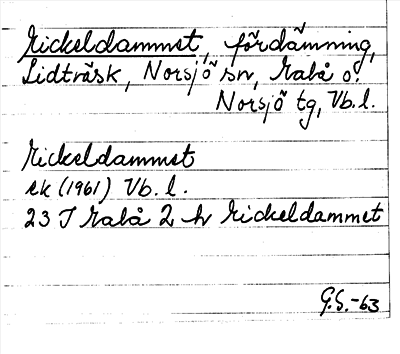 Mickeldammet, fördämning,
Lidträsk, Norsjö sn, Malå o.
Norsjö tg, Vb.l.
Mickeldammet
ek (1961) Vb. l.
23 J Malå 2 h Mickeldammet
G.S.-63